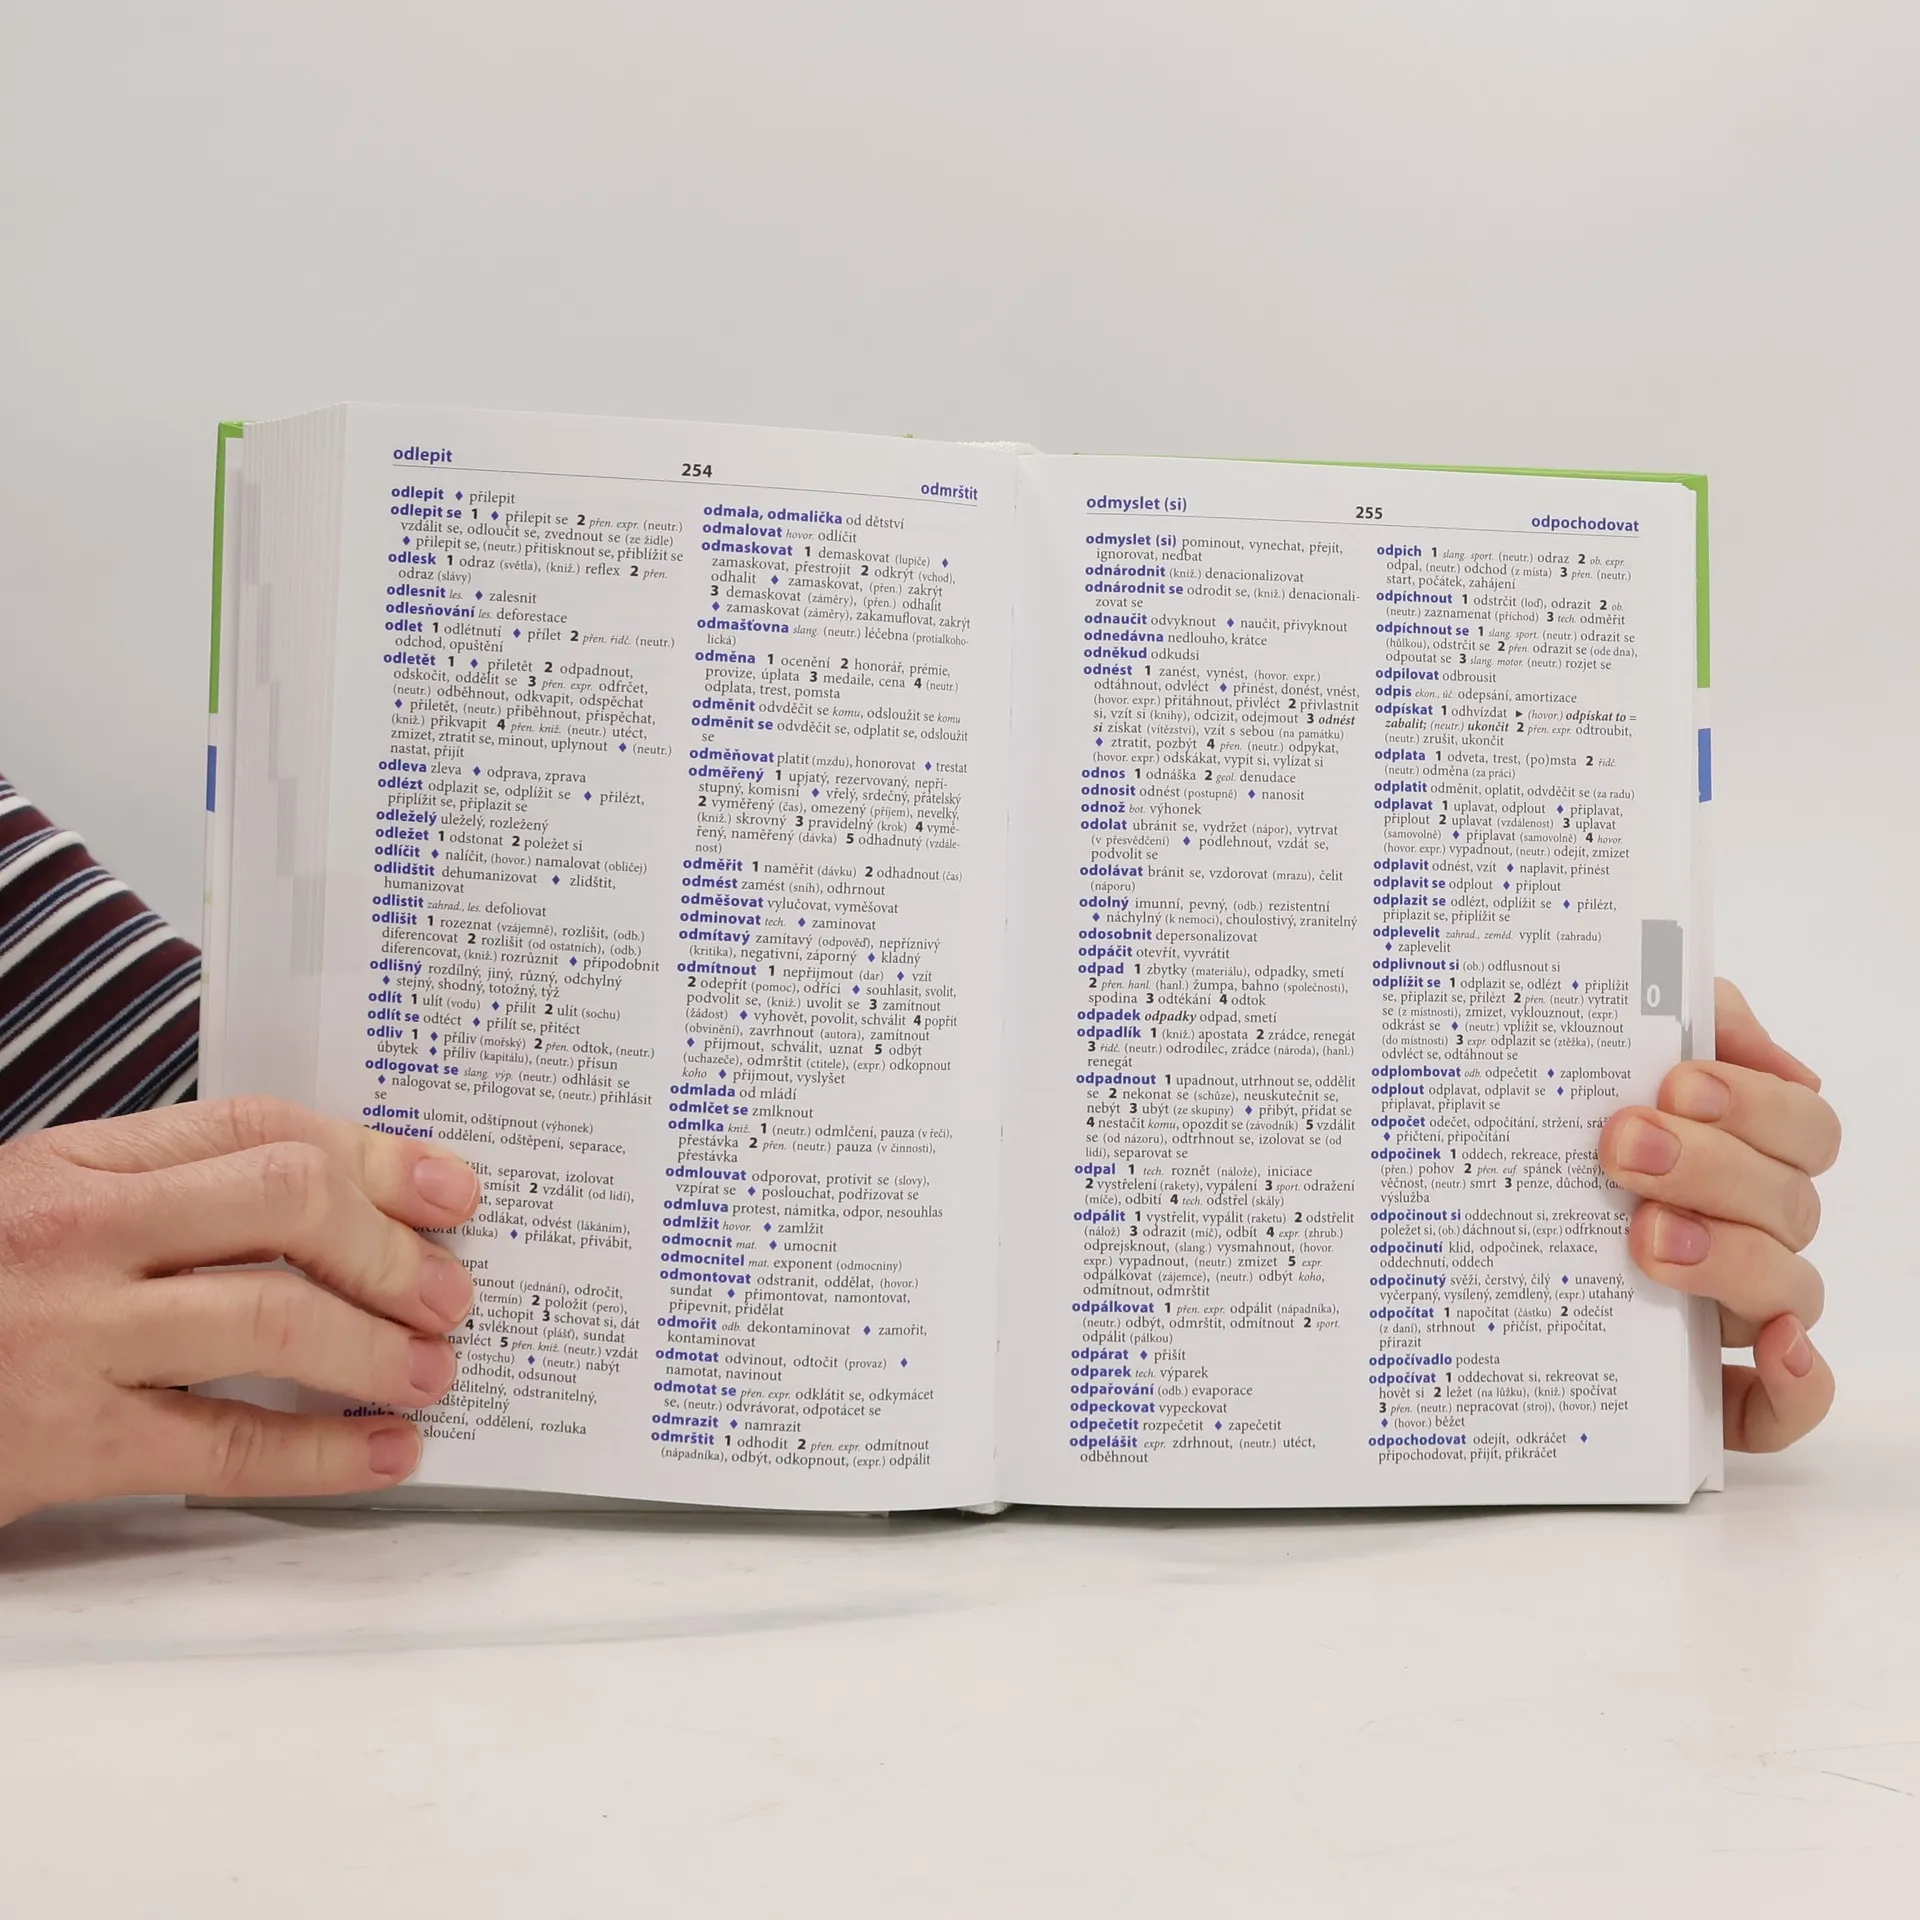 odlepit
254
odmrštit
odlepit ♦ přilepit
odlepit se 1 ♦ přilepit se 2 přen. expr. (neutr.)
vzdálit se, odloučit se, zvednout se (ze židle)
♦ přilepit se, (neutr.) přitisknout se, přiblížit se
odlesk 1 odraz (světla), (kniž.) reflex 2 přen.
odraz (slávy)
odlesnit les. ♦ zalesnit
odlesňování les. deforestace
odlet 1 odlétnutí ♦ přílet 2 přen. řidč. (neutr.)
odchod, opuštění
odletět 1 ♦ přiletět 2 odpadnout,
odskočit, oddělit se 3 přen. expr. odfrčet,
(neutr.) odběhnout, odkvapit, odspěchat
♦ přiletět, (neutr.) přiběhnout, přispěchat,
(kniž.) přikvapit 4 přen. kniž. (neutr.) utéct,
zmizet, ztratit se, minout, uplynout ♦ (neutr.)
nastat, přijít
odleva zleva ♦ odprava, zprava
odlézt odplazit se, odplížit se ♦ přilézt,
připlížit se, připlazit se
odleželý uležely, rozležený
odležet 1 odstonat 2 poležet si
odlíčit ♦ nalíčit, (hovor.) namalovat (obličej)
odlidštit dehumanizovat ♦ zlidštit,
humanizovat
odlistit zahrad., les. defoliovat
odlišit 1 rozeznat (vzájemně), rozlišit, (odb.)
diferencovat 2 rozlišit (od ostatních), (odb.)
diferencovat, (kniž.) rozrůznit ♦ připodobnit
odlišný rozdílný, jiný, různý, odchylný
♦ stejný, shodný, totožný, týž
odlít 1 ulít (vodu) ♦ přilít 2 ulít (sochu)
odlít se odtéct ♦ přilít se, přitéct
odliv 1 ♦ příliv (mořský) 2 přen. odtok, (neutr.)
úbytek ♦ příliv (kapitálu), (neutr.) přísun
odlogovat se slang. výp. (neutr.) odhlásit se
♦ nalogovat se, přilogovat se, (neutr.) přihlásit
se
odlomit ulomit, odštípnout (výhonek)
odloučení oddělení, odštěpení, separace,
separovat, izolovat
smísit 2 vzdálit (od lidí),
separovat
odlákat, odvést (lákáním),
(kluka) ♦ přilákat, přivábit,
(jednání), odročit,
(termín) 2 položit (pero),
uchopit 3 schovat si, dát
4 svléknout (plášť), sundat
navléct 5 přen. kniž. (neutr.) vzdát
(ostychu) ♦ (neutr.) nabýt
odhodit, odsunout
odstranitelný,
odluka odloučení, oddělení, rozluka
sloučení
odmala, odmalička od dětství
odmalovat hovor. odlíčit
odmaskovat 1 demaskovat (lupiče) ♦
zamaskovat, přestrojit 2 odkrýt (vchod),
odhalit ♦ zamaskovat, (přen.) zakrýt
3 demaskovat (záměry), (přen.) odhalit
♦ zamaskovat (záměry), zakamuflovat, zakrýt
odmašťovna slang. (neutr.) léčebna (protialkoho-
lická)
odměna 1 ocenění 2 honorář, prémie,
provize, úplata 3 medaile, cena 4 (neutr.)
odplata, trest, pomsta
odměnit odvděčit se komu, odsloužit se komu
odměnit se odvděčit se, odplatit se, odsloužit
se
odměňovat platit (mzdu), honorovat ♦ trestat
odměřený 1 upjatý, rezervovaný, nepří-
stupný, komisní ♦ vřelý, srdečný, přátelský
2 vyměřený (čas), omezený (příjem), nevelký,
(kniž.) skrovný 3 pravidelný (krok) 4 vymě-
řený, naměřený (dávka) 5 odhadnutý (vzdále-
nost)
odměřit 1 naměřit (dávku) 2 odhadnout (čas)
odmést zamést (sníh), odhrnout
odměšovat vylučovat, vyměšovat
odminovat tech. ♦ zaminovat
odmítavý zamítavý (odpověď), nepříznivý
(kritika), negativní, záporný ♦ kladný
odmítnout 1 nepřijmout (dar) ♦ vzít
2 odepřít (pomoc), odříci ♦ souhlasit, svolit,
podvolit se, (kniž.) uvolit se 3 zamítnout
(žádost) ♦ vyhovět, povolit, schválit 4 popřít
(obvinění), zavrhnout (autora), zamítnout
♦ přijmout, schválit, uznat 5 odbýt
(uchazeče), odmrštit (ctitele), (expr.) odkopnout
koho ♦ přijmout, vyslyšet
odmlada od mládí
odmlčet se zmlknout
odmlka kniž. 1 (neutr.) odmlčení, pauza (v řeči),
přestávka 2 přen. (neutr.) pauza (v činnosti),
přestávka
odmlouvat odporovat, protivit se (slovy),
vzpírat se ♦ poslouchat, podřizovat se
odmluva protest, námitka, odpor, nesouhlas
odmlžit hovor. ♦ zamlžit
odmocnit mat. ♦ umocnit
odmocnitel mat. exponent (odmocniny)
odmontovat odstranit, oddělat, (hovor.)
sundat ♦ přimontovat, namontovat,
připevnit, přidělat
odmořit odb. dekontaminovat ♦ zamořit,
kontaminovat
odmotat odvinout, odtočit (provaz) ♦
namotat, navinout
odmotat se přen. expr. odklátit se, odkymácet
se, (neutr.) odvrávorat, odpotácet se
odmrazit ♦ namrazit
odmrštit 1 odhodit 2 přen. expr. odmítnout
(nápadníka), odbýt, odkopnout, (expr.) odpálit
odmyslet (si)
255
odpochodovat
odmyslet (si) pominout, vynechat, přejít,
ignorovat, nedbat
odnárodnit (kniž.) denacionalizovat
odnárodnit se odrodit se, (kniž.) denacionali-
zovat se
odnaučit odvyknout ♦ naučit, přivyknout
odnedávna nedlouho, krátce
odněkud odkudsi
odnést 1 zanést, vynést, (hovor. expr.)
odtáhnout, odvléct ♦ přinést, donést, vnést,
(hovor. expr.) přitáhnout, přivléct 2 přivlastnit
si, vzít si (knihy), odcizit, odejmout 3 odnést
si získat (vítězství), vzít s sebou (na památku)
♦ ztratit, pozbýt 4 přen. (neutr.) odpykat,
(hovor. expr.) odskákat, vypít si, vylízat si
odnos 1 odnáška 2 geol. denudace
odnosit odnést (postupně) ♦ nanosit
odnož bot. výhonek
odolat ubránit se, vydržet (nápor), vytrvat
(v přesvědčení) ♦ podlehnout, vzdát se,
podvolit se
odolávat bránit se, vzdorovat (mrazu), čelit
(náporu)
odolný imunní, pevný, (odb.) rezistentní
♦ náchylný (k nemoci), choulostivý, zranitelný
odosobnit depersonalizovat
odpáčit otevřít, vyvrátit
odpad 1 zbytky (materiálu), odpadky, smetí
2 přen. hanl. (hanl.) žumpa, bahno (společnosti),
spodina 3 odtékání 4 odtok
odpadek odpadky odpad, smetí
odpadlík 1 (kniž.) apostata 2 zrádce, renegát
3 řidč. (neutr.) odrodilec, zrádce (národa), (hanl.)
renegát
odpadnout 1 upadnout, utrhnout se, oddělit
se 2 nekonat se (schůze), neuskutečnit se,
nebýt 3 ubýt (ze skupiny) ♦ přibýt, přidat se
4 nestačit komu, opozdit se (závodník) 5 vzdálit
se (od názoru), odtrhnout se, izolovat se (od
lidí), separovat se
odpal 1 tech. roznět (nálože), iniciace
2 vystřelení (rakety), vypálení 3 sport. odražení
(míče), odbití 4 tech. odstřel (skály)
odpálit 1 vystřelit, vypálit (raketu) 2 odstřelit
(nálož) 3 odrazit (míč), odbít 4 expr. (zhrub.)
odprejsknout, (slang.) vysmahnout, (hovor.
expr.) vypadnout, (neutr.) zmizet 5 expr.
odpálkovat (zájemce), (neutr.) odbýt koho,
odmítnout, odmrštit
odpálkovat 1 přen. expr. odpálit (nápadníka),
(neutr.) odbýt, odmrštit, odmítnout 2 sport.
odpálit (pálkou)
odpárat ♦ přišít
odparek tech. výparek
odpařování (odb.) evaporace
odpeckovat vypeckovat
odpečetit rozpečetit ♦ zapečetit
odpelášit expr. zdrhnout, (neutr.) utéct,
odběhnout
odpich 1 slang. sport. (neutr.) odraz 2 ob. expr.
odpal, (neutr.) odchod (z místa) 3 přen. (neutr.)
start, počátek, zahájení
odpíchnout 1 odstrčit (loď), odrazit 2 ob.
(neutr.) zaznamenat (příchod) 3 tech. odměřit
odpíchnout se 1 slang. sport. (neutr.) odrazit se
(hůlkou), odstrčit se 2 přen. odrazit se (ode dna),
odpoutat se 3 slang. motor. (neutr.) rozjet se
odpilovat odbrousit
odpis ekon., úč. odepsání, amortizace
odpískat 1 odhvízdat ► (hovor.) odpískat to =
zabalit; (neutr.) ukončit 2 přen. expr. odtroubit,
(neutr.) zrušit, ukončit
odplata 1 odveta, trest, (po)msta 2 řidč.
(neutr.) odměna (za práci)
odplatit odměnit, oplatit, odvděčit se (za radu)
odplavat 1 uplavat, odplout ♦ připlavat,
připlout 2 uplavat (vzdálenost) 3 uplavat
(samovolně) ♦ připlavat (samovolně) 4 hovor.
(hovor. expr.) vypadnout, (neutr.) odejít, zmizet
odplavit odnést, vzít ♦ naplavit, přinést
odplavit se odplout ♦ připlout
odplazit se odlézt, odplížit se ♦ přilézt,
připlazit se, připlížit se
odplevelit zahrad., zeměd. vyplít (zahradu)
♦ zaplevelit
odplivnout si (ob.) odflusnout si
odplížit se 1 odplazit se, odlézt ♦ připlížit
se, připlazit se, přilézt 2 přen. (neutr.) vytratit
se (z místnosti), zmizet, vyklouznout, (expr.)
odkrást se ♦ (neutr.) vplížit se, vklouznout
(do místnosti) 3 expr. odplazit se (ztěžka), (neutr.)
odvléct se, odtáhnout se
odplombovat odb. odpečetit ♦ zaplombovat
odplout odplavat, odplavit se ♦ připlout,
připlavat, připlavit se
odpočet odečet, odpočítání, stržení,
♦ přičtení, připočítání
odpočinek 1 oddech, rekreace,
(přen.) pohov 2 přen. euf. spánek (věčný),
věčnost, (neutr.) smrt 3 penze, důchod,
výslužba
odpočinout si oddechnout si, zrekreovat se,
poležet si, (ob.) dáchnout si, (expr.) odfrknout
odpočinutí klid, odpočinek, relaxace,
oddechnutí, oddech
odpočinutý svěží, čerstvý, čilý ♦ unavený,
vyčerpaný, vysílený, zemdlený, (expr.) utahaný
odpočítat 1 napočítat (částku) 2 odečíst
(z daní), strhnout ♦ přičíst, připočítat,
přirazit
odpočívadlo podesta
odpočívat 1 oddechovat si, rekreovat se,
hovět si 2 ležet (na lůžku), (kniž.) spočívat
3 přen. (neutr.) nepracovat (stroj), (hovor.) nejet
♦ (hovor.) běžet
odpochodovat odejít, odkráčet ♦
připochodovat, přijít, přikráčet
O